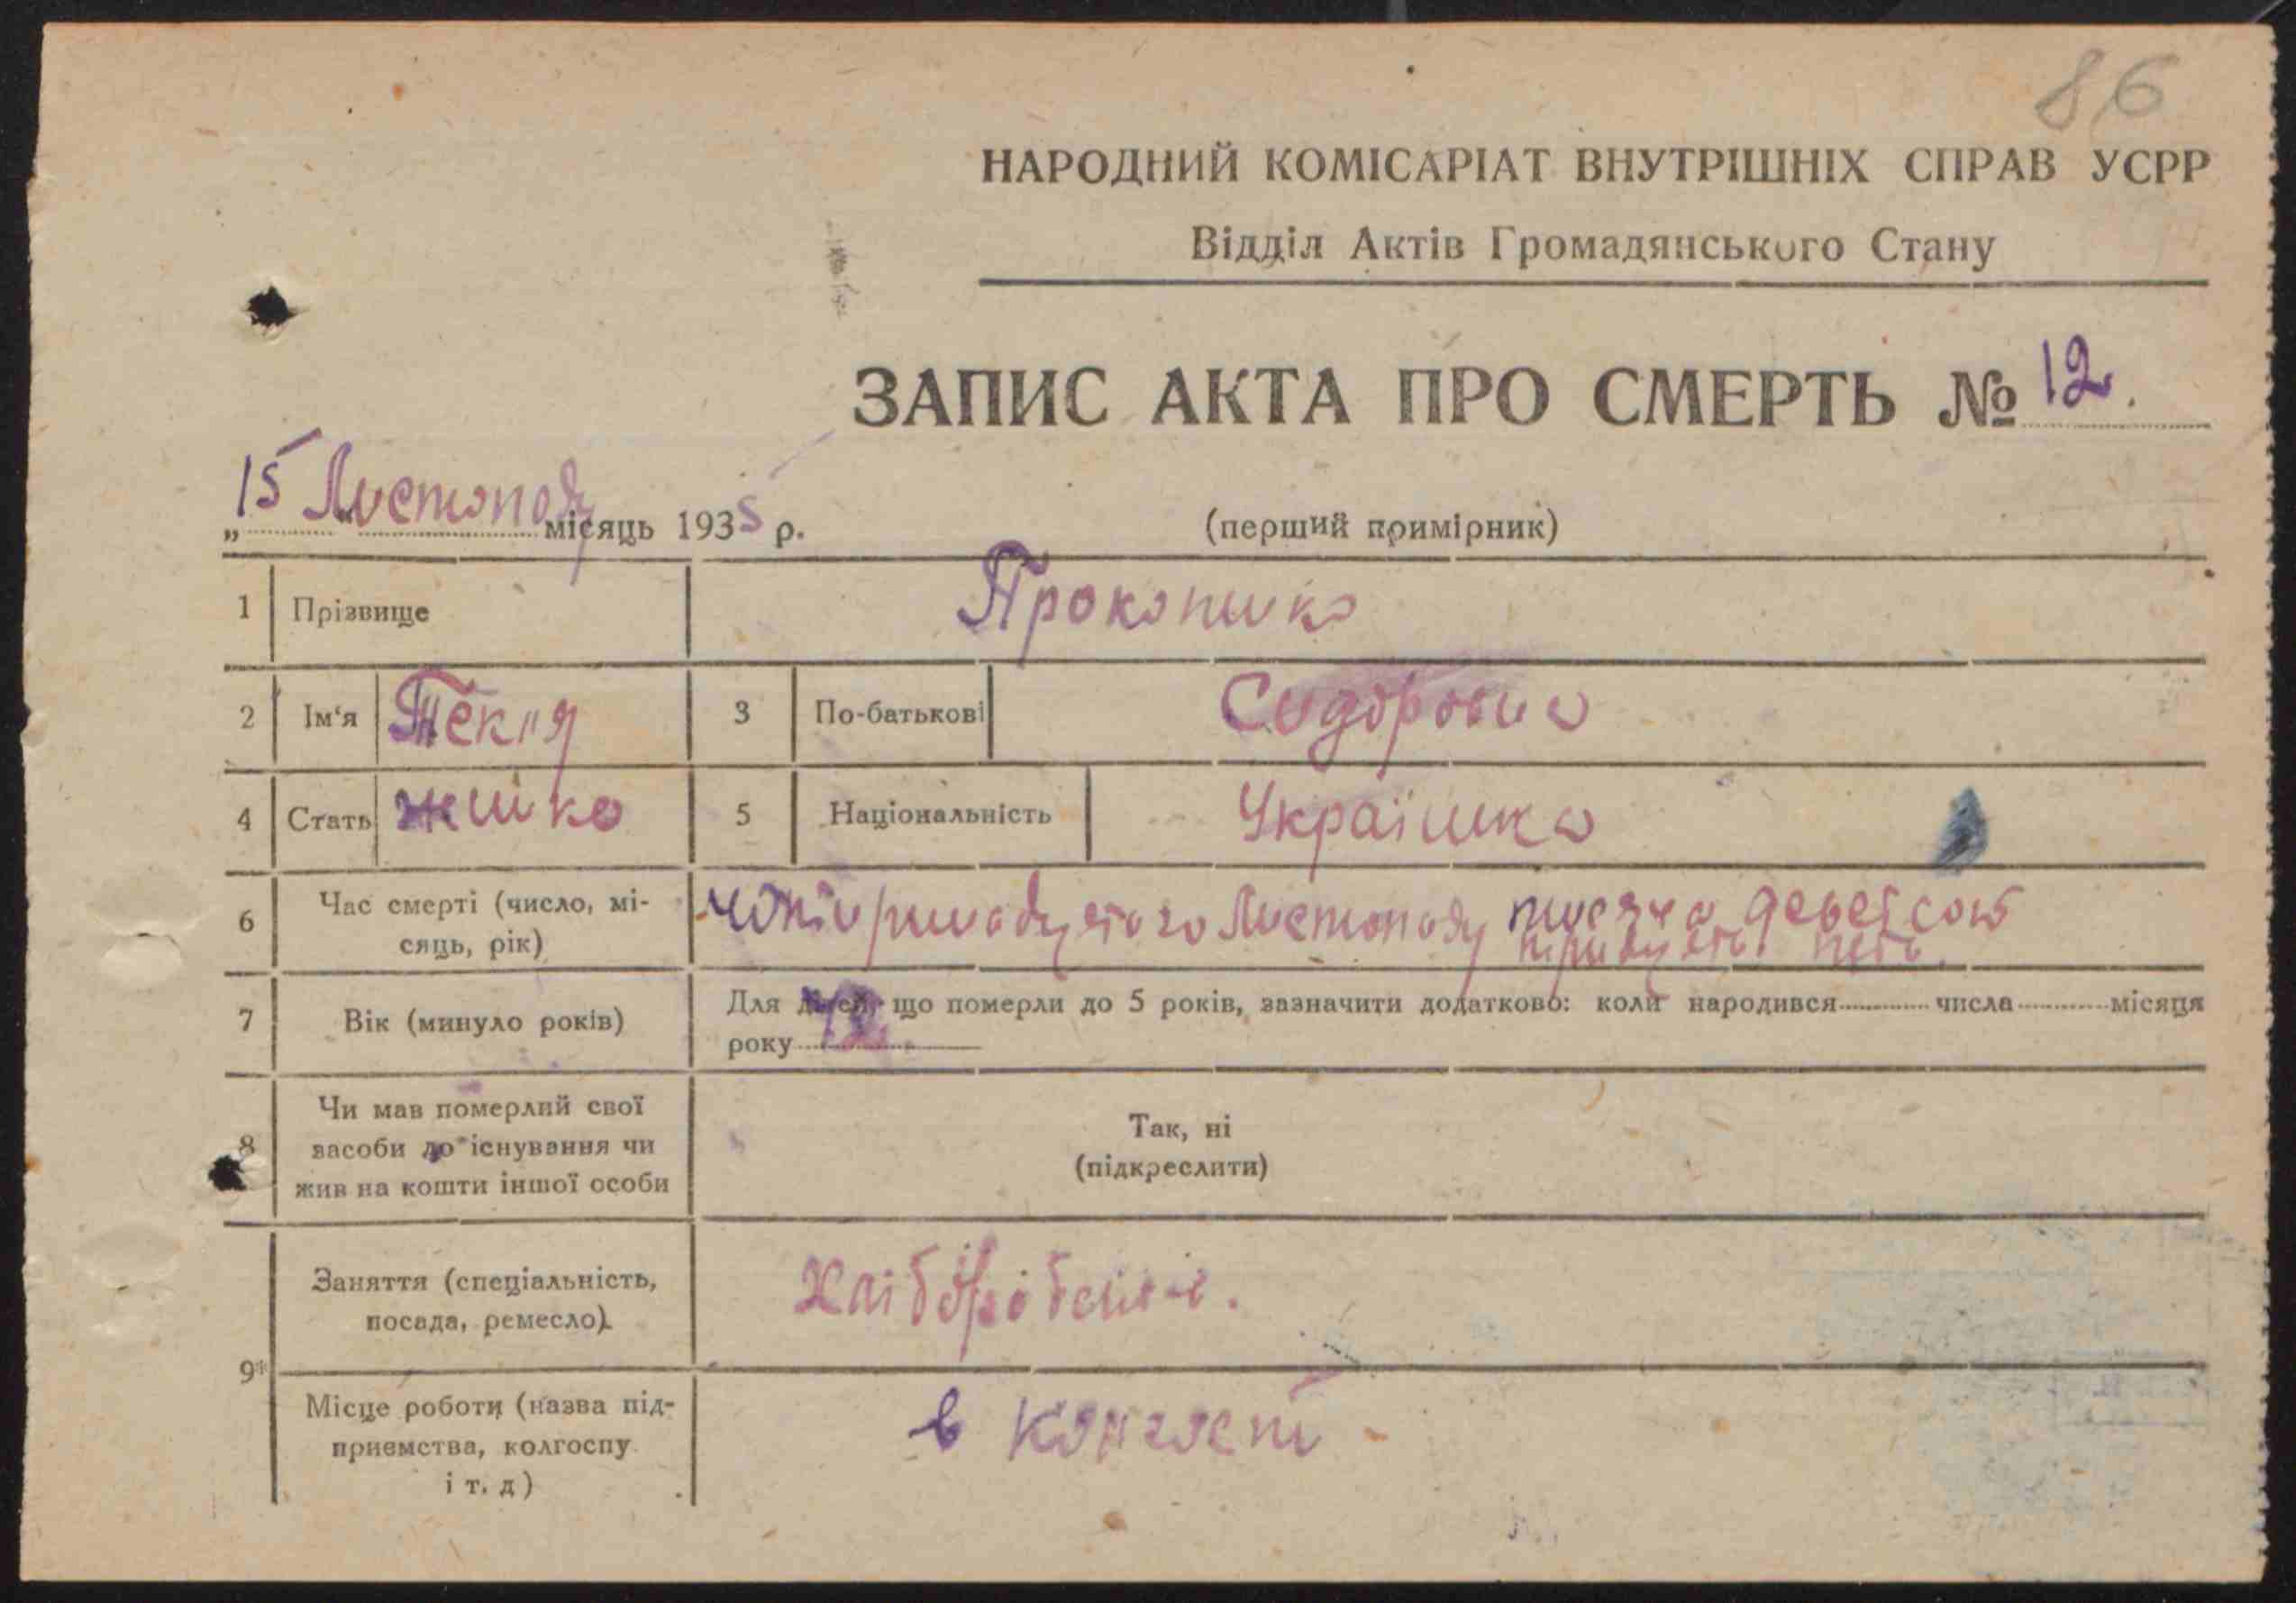 86
НАРОДНИЙ КОМІСАРІАТ ВНУТРІШНІХ СПРАВ УСРР
Відділ Актів Громадянського Стану
ЗАПИС АКТА ПРО СМЕРТЬ № 12.
„15 Листопаду місяць 1935 р.
(перший примірник)
1 Прізвище Прокопик
2 Ім‘я Текля 3 По-батькові Сидоровна
4 Стать жінка 5 Національність Українка
6 Час смерті (число, мі-
сяць, рік)
Листопаду тисяча деветсот
7 Вік (минуло років)
Для дітей, що померли до 5 років, зазначити додатково: коли народився числа місяця
року
8 Чи мав померлий свої
засоби до існування чи
жив на кошти іншої особи
Так, ні
(підкреслити)
9* Заняття (спеціальність,
посада, ремесло)
Місце роботи (назва під-
приємства, колгоспу
і т. д)
в